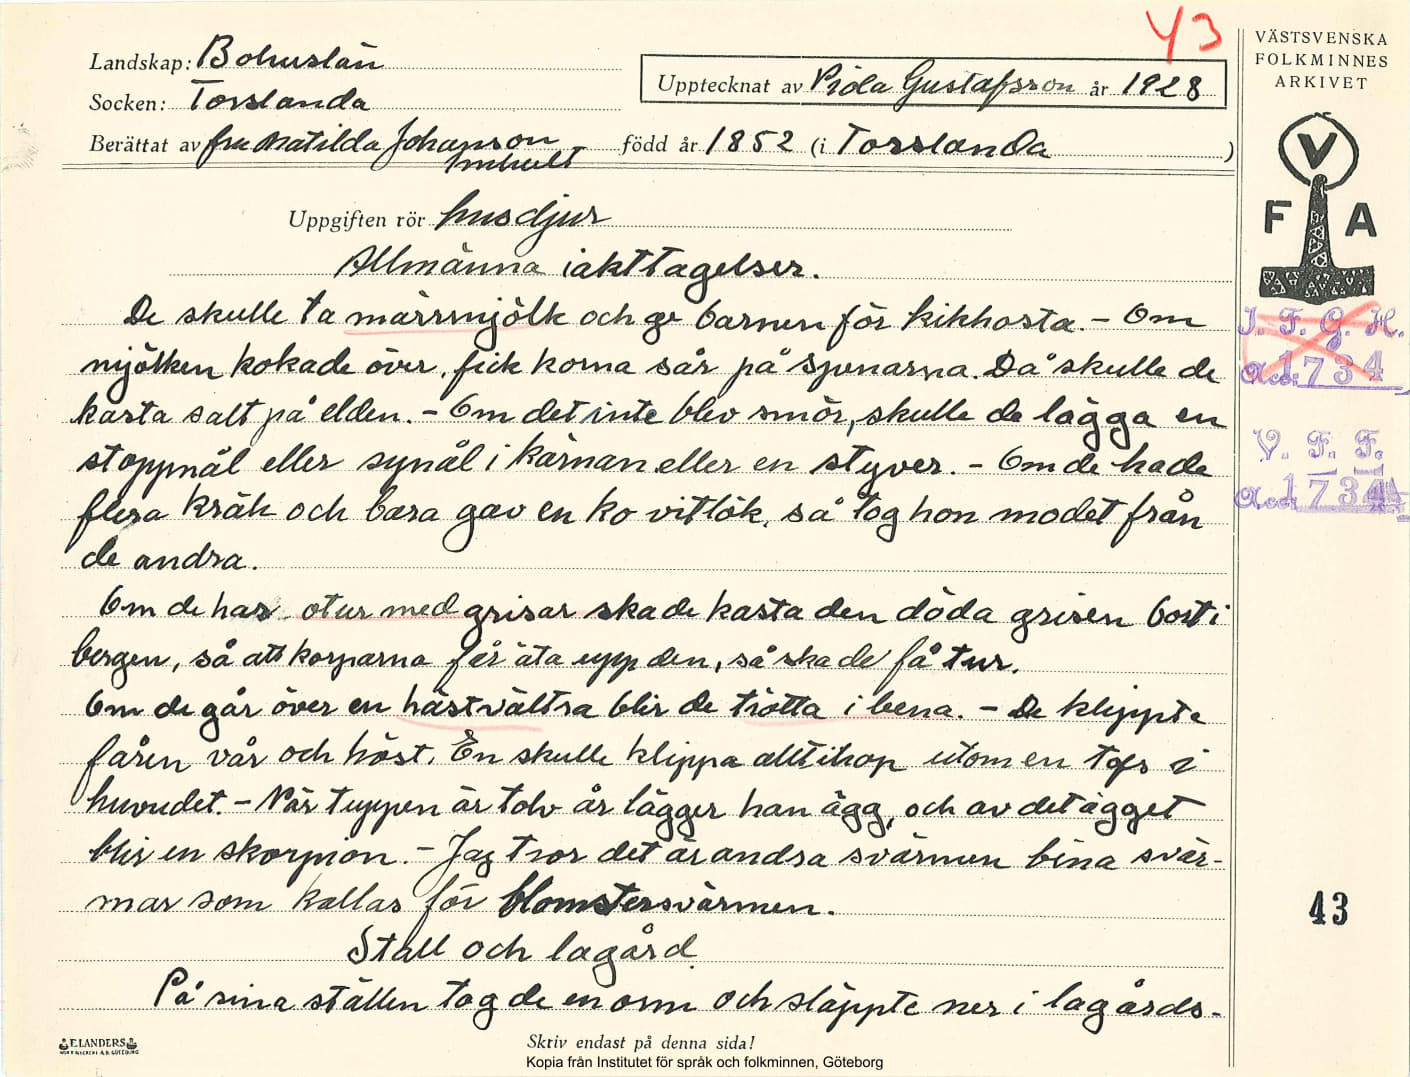 43
Landskap: Bohuslän
Upptecknat av Gustafsson år 1928
Socken: Torslanda
Berättat av fru Matilda Johansson född år 1852 (i Torslanda )
Uppgiften rör husdjur
Allmänna iakttagelser.
De skulle ta märrmjölk och ge barnen för kikhosta. - Om
mjölken kokade över, fick korna sår på spenarna. Då skulle de
kasta salt på elden. - Om det inte blev smör, skulle de lägga en
stoppnål eller synål i kärnan eller en styver. - Om de hade
flera kräk och bara gav en ko vitlök, så tog hon modet från
de andra.
Om de har otur med grisar ska de kasta den döda grisen bort i
bergen, så att korparna får äta upp den, så ska de få tur.
Om de går över en hästvältra blir de trötta i bena. - De klippte
fåren vår och höst. En skulle klippa alltihop utom en tofs i
huvudet. - När tuppen är tolv år lägger han ägg, och av det ägget
blir en skorpion. - Jag tror det är andra svärmen bina svär-
mar som kallas för blomstersvärmen.
Stall och lagård
På sina ställen tog de en orm och släppte ner i lagårds-
Skriv endast på denna sida!
Kopia från Institutet för språk och folkminnen, Göteborg
ELANDERS
VÄSTSVENSKA
FOLKMINNES
ARKIVET
V
F A
I. F. G. H.
Acc: 1734
V. F. F.
Acc: 1734
43